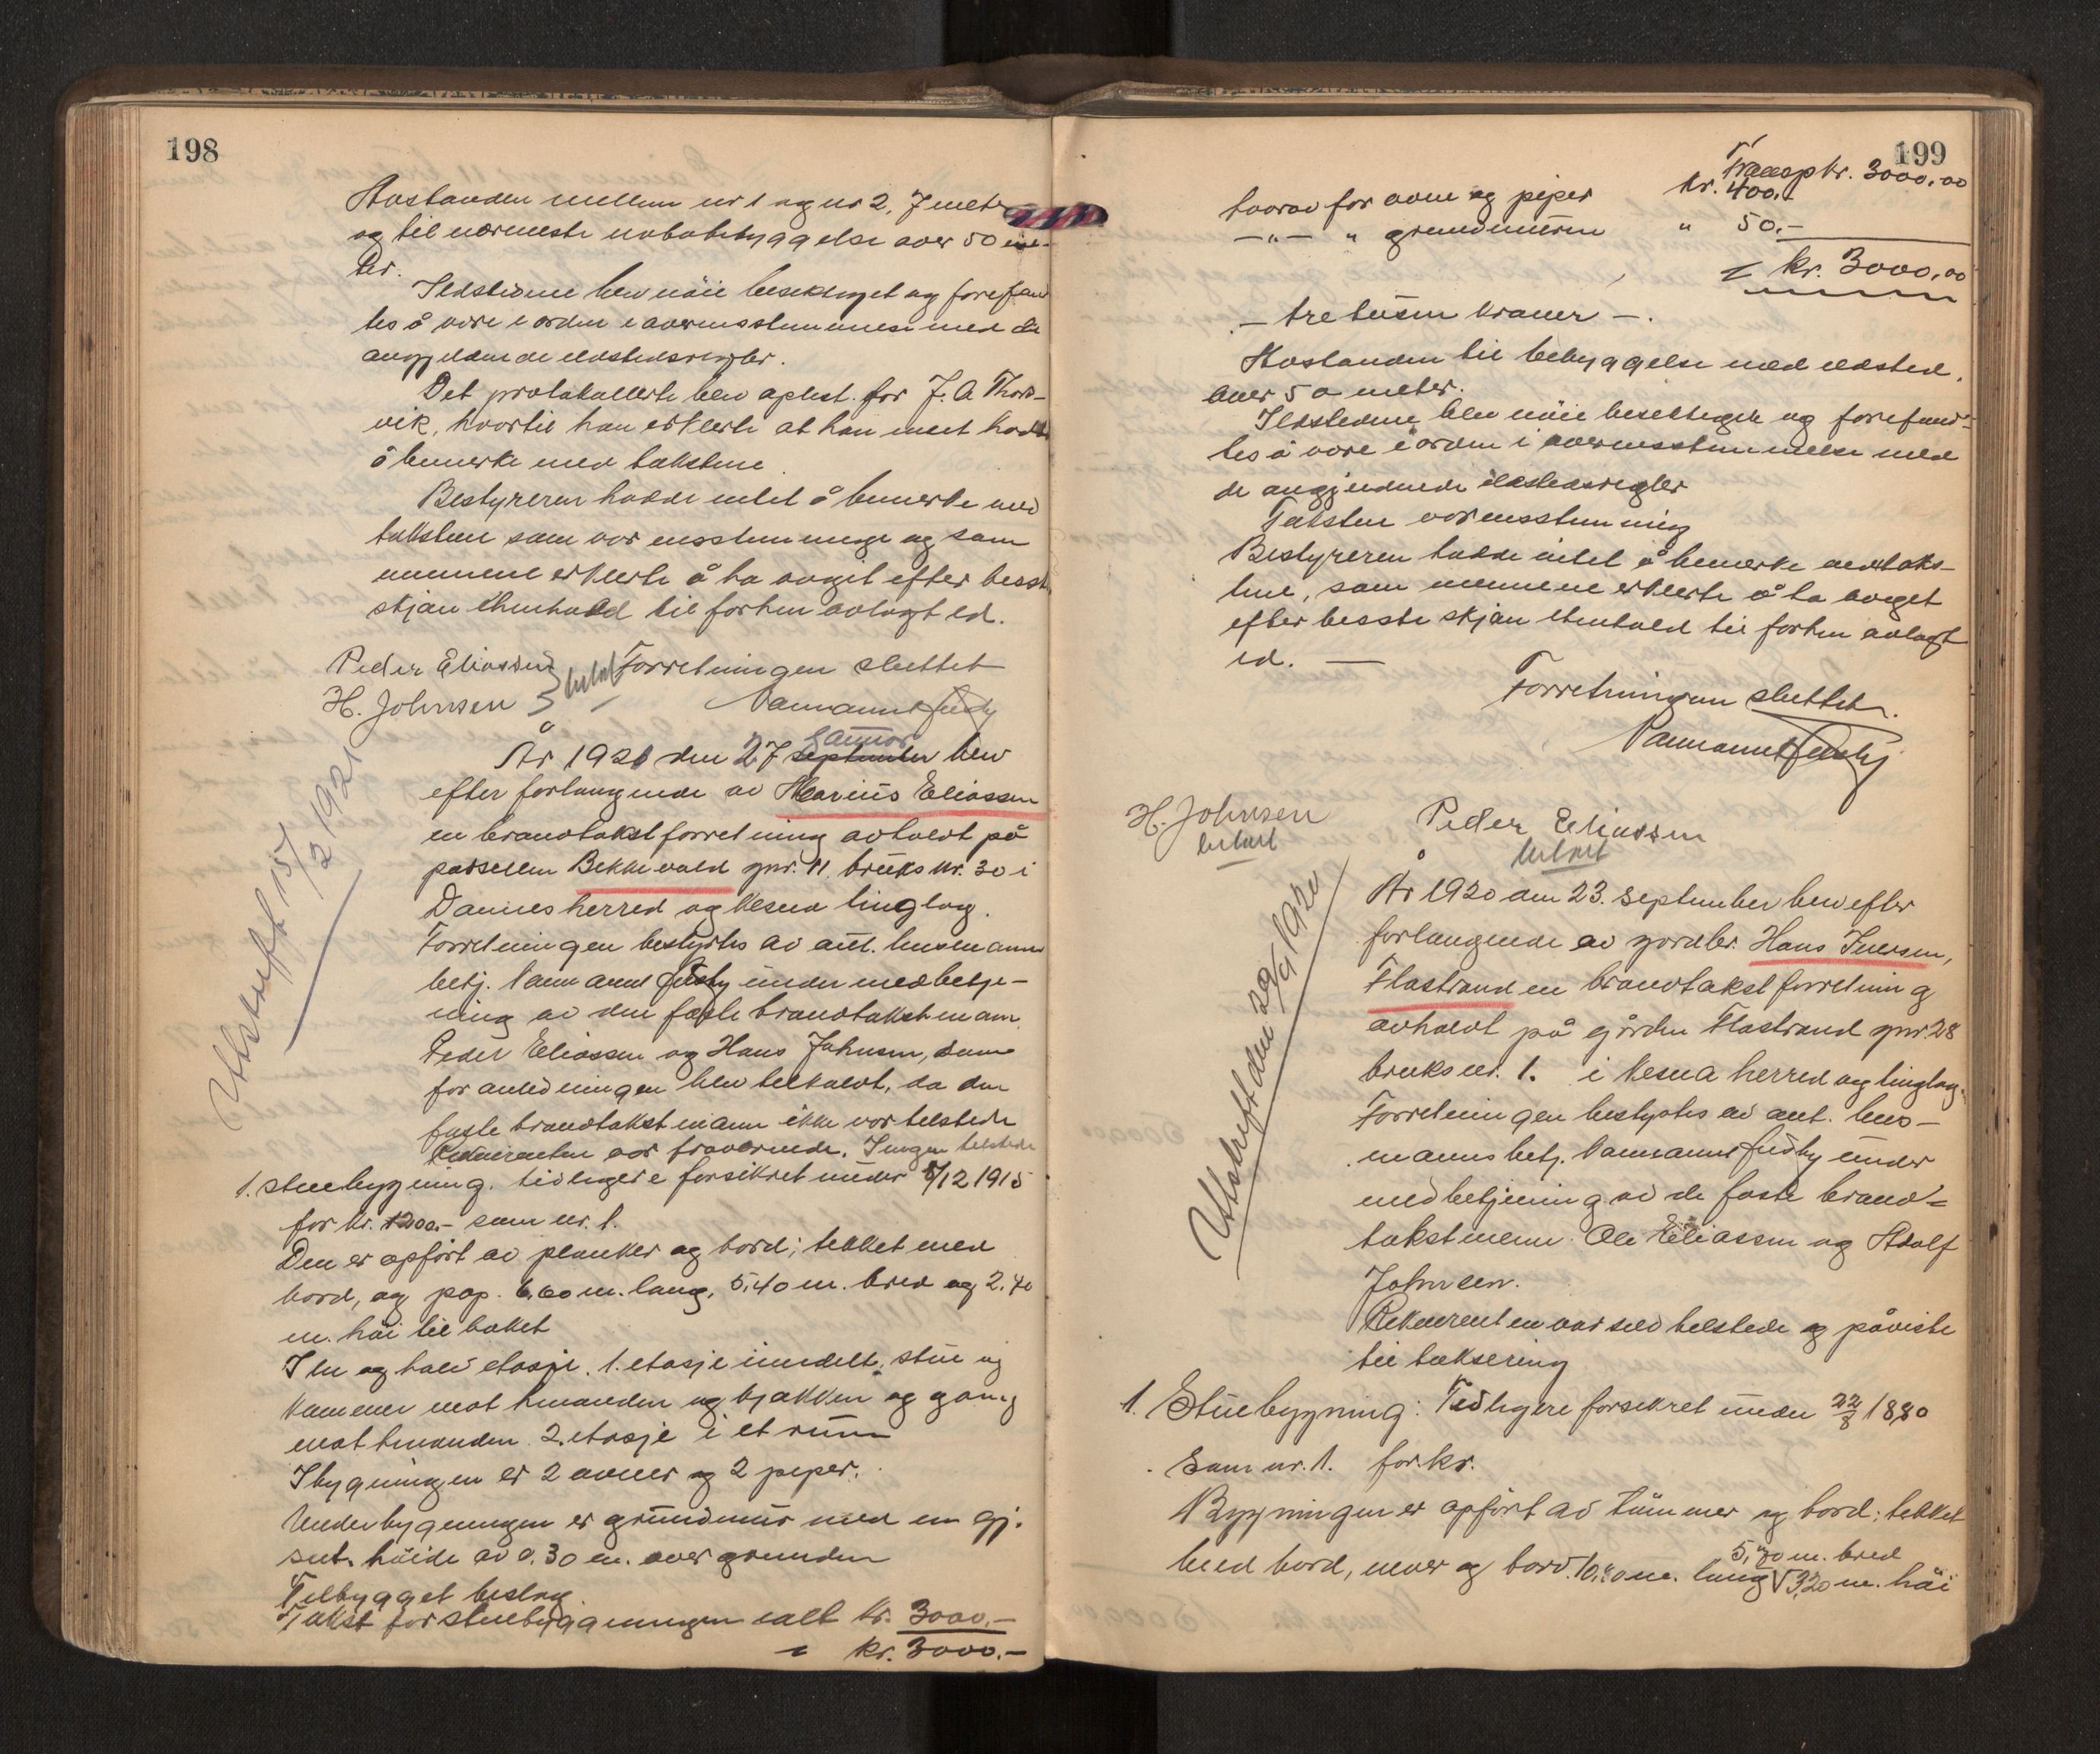 198
Avstanden mellem nr 1 og nr 2, 7 meter
og til nærmeste nabobebyggelse over 50 me-
ter.
Ildstedene blev nöie besiktiget og forefand
tes å være i orden i overensstemmelse med de
angjeldende ildstedsregler.
Det protokollerte blev oplest for J. A. Thors-
vik, hvortil han erklerte at han intet hadde
å bemerke med takstene.
Bestyreren hadde intet å bemerke med
taksten som var enstemmige og som
mennene erklerte å ha avgit efter beste
skjön i henhold til forhen avlagt ed.
Peder Eliassen
H. Johnsen
betalt
Forretningen sluttet
År 1921 den 27 september januar blev
efter forlangende av Marius Eliassen
en brandtakstforretning avholdt på
parsellen Bekkevold gnr. 11. bruks nr. 30 i
Dønnes herred og Nesna tinglag.
Forretningen bestyrtes av aut. lensmanns
betj. under medbetje-
ning av den faste brandtakstmann
Peder Eliassen og Hans Johnsen, som
for anledningen blev tilkaldt, da den
faste brandtakstmann ikke var tilstede
Rekvirenten var fraværende. Ingen tilstede
Utskrift 15/2 1921
1. Stuebygning. tidligere forsikret under 5/12 1915
for kr. 1200.- som nr. 1.
Den er opført av planker og bord; tekket med
bord, og pap. 6,60 m. lang, 5,40 m. bred og 2,40
m. höi til taket
I en og halv etasje. 1. etasje inndelt, stue og
kammer mot hinanden og kjøkken og gang
mot hinanden. 2. etasje i et rum
I bygningen er 2 ovner og 2 piper.
Underbygningen er grundmur med en gj.
snt. höide av 0,30 m. over grunden
Tilbygget beslag.
Takst for stuebyggningen ialt kr. 3000.-
kr. 3000.-
199
Transp kr. 3000,00
hvorav for ovne og piper kr. 400.-
—"— " grundmuren " 50.-
kr. 3000,00
— tre tusen kroner —.
Avstanden til bebyggelse med ildsted,
over 50 meter.
Ildstedene blev nöie besiktiget og forefund-
tes å være i orden i overensstemmelse med
de angjeldende ildstedsregler
Taksten var enstemmig
Bestyreren hadde intet å bemerke ved taks-
tene, som mennene erklerte å ha avgit
efter beste skjön i henhold til forhen avlagt
ed. —
Forretningen sluttet.
H. Johnsen
betalt
Peder Eliassen
betalt
År 1920 den 23. september blev efter
forlangende av gordbr. Hans Iversen,
Flostrand en brandtakst forretning
avholdt på gården Flostrand gnr. 28
bruks nr. 1. i Nesna herred og tinglag.
Forretningen bestyrtes av aut. lens-
manns betj. under
medbetjening av de faste brand-
takstmenn Ole Eliassen og Adolf
Johnsen.
Rekvirenten var selv tilstede og påviste
til taksering
Utskrift den 29/9 1920
1. Stuebygning: Tidligere forsikret under 22/8 1880
som nr. 1. for kr.
Bygningen er opført av tømmer og bord; tekket
med bord, never og bord. 10,80 m. lang 5,70 m. bred 3,20 m. höi